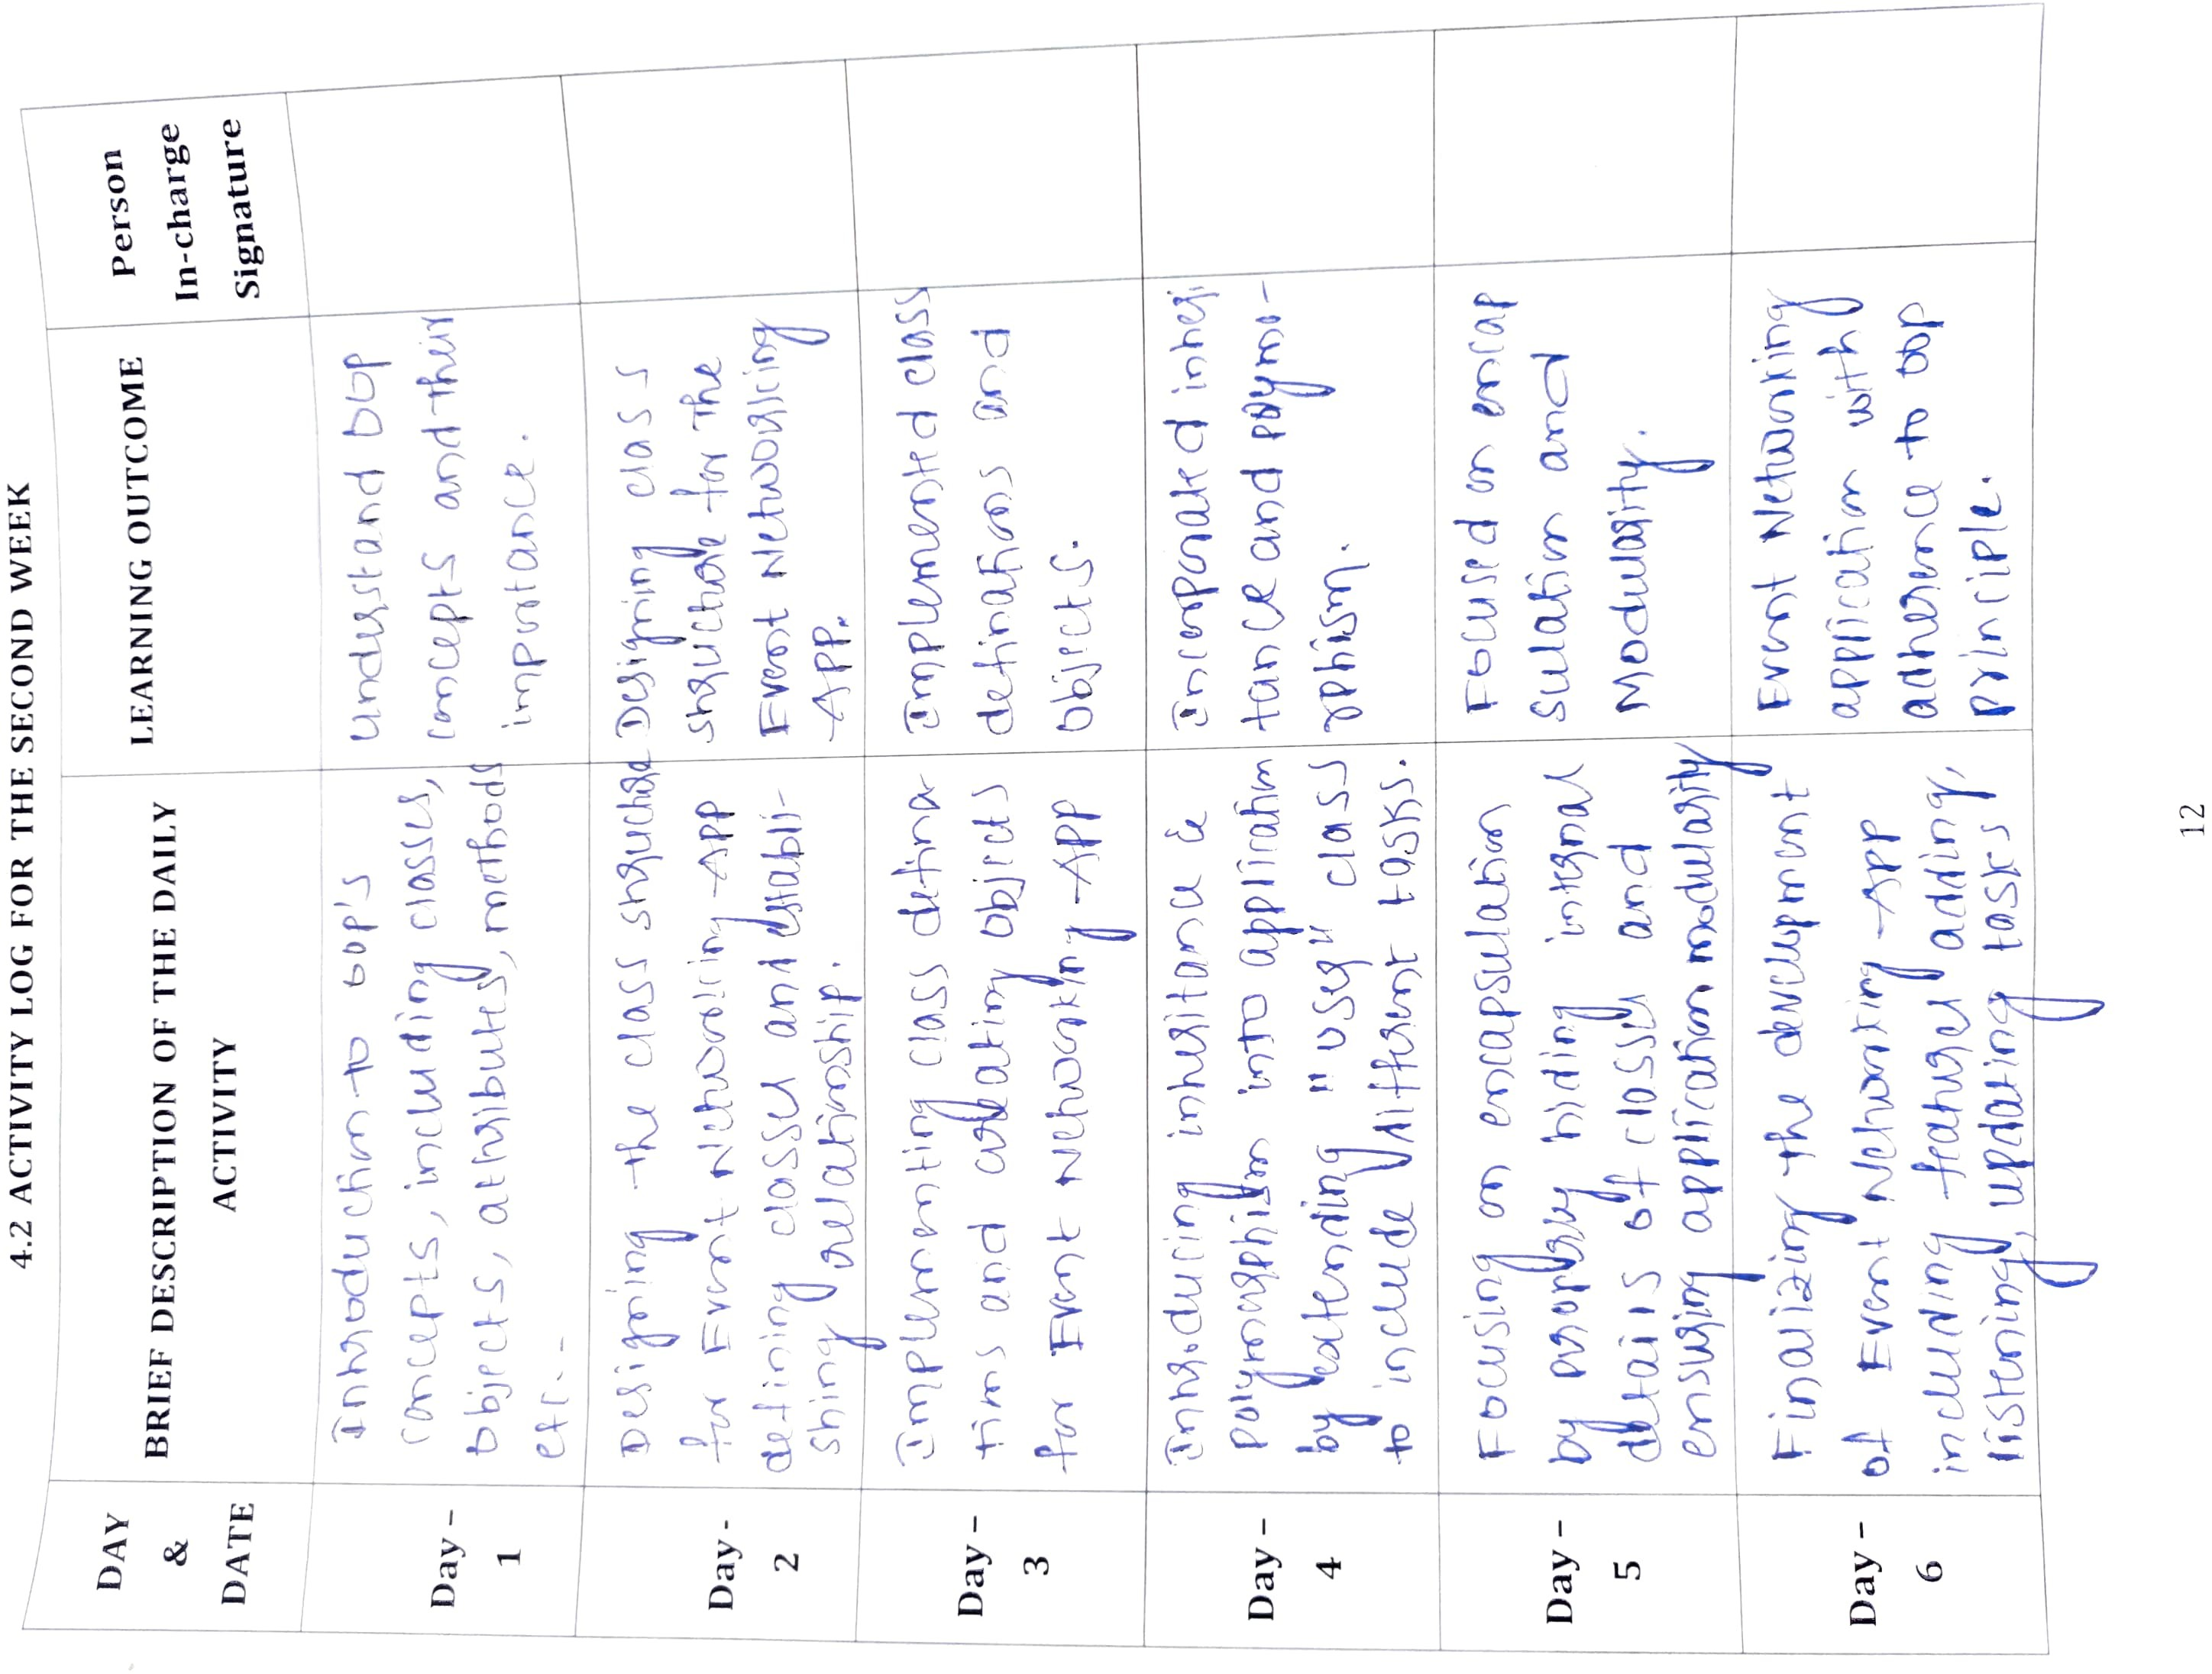 4.2 ACTIVITY LOG FOR THE SECOND WEEK
DAY
&
DATE
BRIEF DESCRIPTION OF THE DAILY
ACTIVITY
LEARNING OUTCOME
Person
In-charge
Signature
Day –
1
Introduction to oop's
concepts, including classes,
objects, attributes, methods
etc..
understand oop
concepts and their
importance.
Day -
2
Designing the class structure
for Event Networking App
defining classes and establi-
shing relationship.
Designing class
structure for the
Event Networking
App.
Day –
3
Implementing class defina
tions and creating objects
for Event Networking App
Implemented class
definations and
objects.
Day –
4
Introducing inheritance &
polymorphism into application
by extending "user" class
to include different tasks.
Incorporated inheri
tance and poymo-
rphism.
Day –
5
Focusing on encapsulation
by properly hiding internal
details of classes and
ensuring application modularity
Focused on encap
sulation and
Modularity.
Day –
6
Finalizing the development
of Event Networking App
including features adding,
listening, updating tasks
Event Networking
application with
adherence to oop
principle.
12